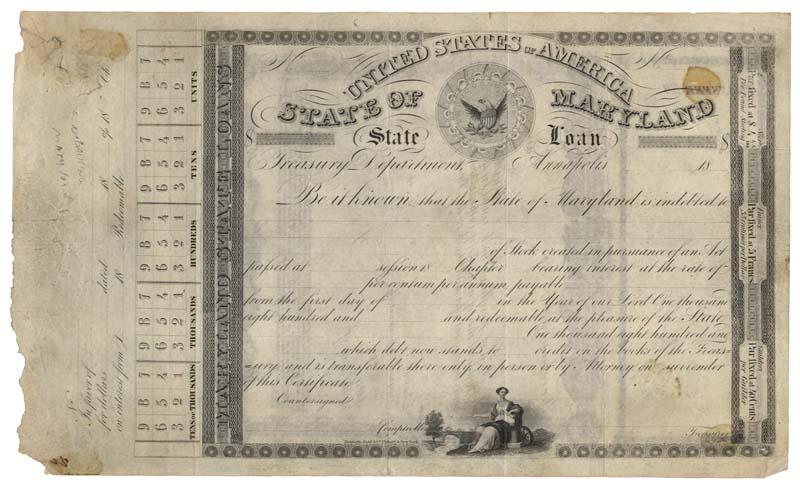 UNITED STATES OF AMERICA
No.
No.
STATE OF MARYLAND
$ State Loan $
Treasury Department, Annapolis 18
Be it known that the State of Maryland is indebted to
of Stock created in pursuance of an Act
passed at session 18 Chapter bearing interest at the rate of
per centum per annum payable
from the first day of in the Year of our Lord One thousand
eight hundred and and redeemable at the pleasure of the State
One thousand eight hundred and
which debt now stands to credit on the books of the Treas-
ury and is transferable there only, in person or by Attorney on surrender
of this Certificate
Countersigned
Comptroller
Treasurer
MARYLAND STATE LOANS
UNITS
TENS
HUNDREDS
THOUSANDS
TENS OF THOUSANDS
9 8 7
6 5 4
3 2 1
9 8 7
6 5 4
3 2 1
9 8 7
6 5 4
3 2 1
9 8 7
6 5 4
3 2 1
9 8 7
6 5 4
3 2 1
No.
In favor of dated 18
for dollars 18 Redeemable
on interest from
Par fixed at $4.44
Par fixed at 5 Francs
Guilders
Par fixed at 40 Cents
per Guilder